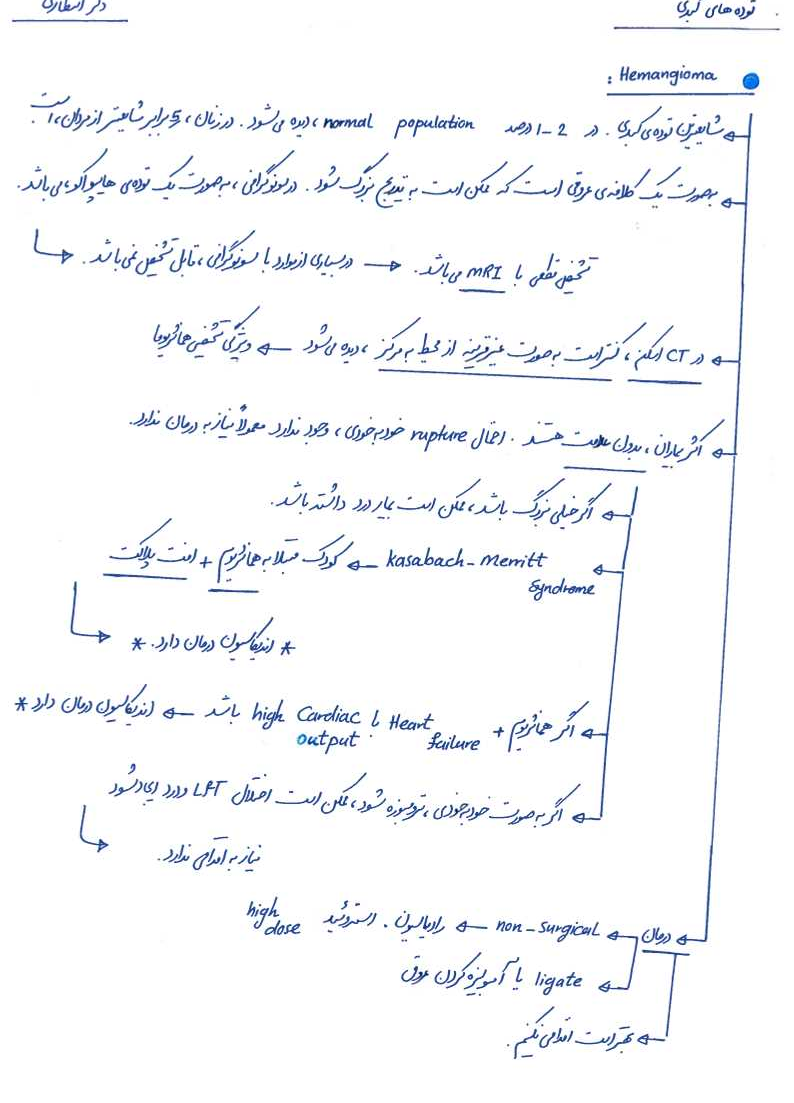 توده های کبدی
دکتر انتظاری
Hemangioma :
شایعترین توده ی کبدی. در 2-1 درصد normal population، دیده می شود. در زنان، 5 برابر شایعتر از مردان، است
بصورت یک کلافه ی عروقی است که ممکن است به تدریج بزرگ شود. در سونوگرافی، به صورت یک توده ی هایپواکو، می باشد.
در بسیاری از موارد با سونوگرافی، قابل تشخیص نمی باشد. → تشخیص قطعی با MRI می باشد.
در CT اسکن، کنتراست به صورت غیرقرینه از محیط به مرکز، دیده می شود ← ویژگی تشخیصی همانژیوما
اکثر بیماران، بدون علامت هستند. احتمال rupture خودبخودی، وجود ندارد معمولاً نیاز به درمان ندارد.
اگر خیلی بزرگ باشد، ممکن است بیمار درد داشته باشد.
kasabach-merritt syndrome ← کودک مبتلا به همانژیوم + افت پلاکت
* اندیکاسیون درمان دارد. *
اگر همانژیوم + Heart failure با high Cardiac output باشد ← اندیکاسیون درمان دارد *
اگر به صورت خودبخودی، ترومبوزه شود، ممکن است اختلال LFT وارد ایجاد شود
نیاز به اقدامی ندارد.
درمان ← non-surgical ← رادیاسیون. استروئید high dose
ligate یا آمبولیزه کردن عروق
بهتر است اقدامی نکنیم.